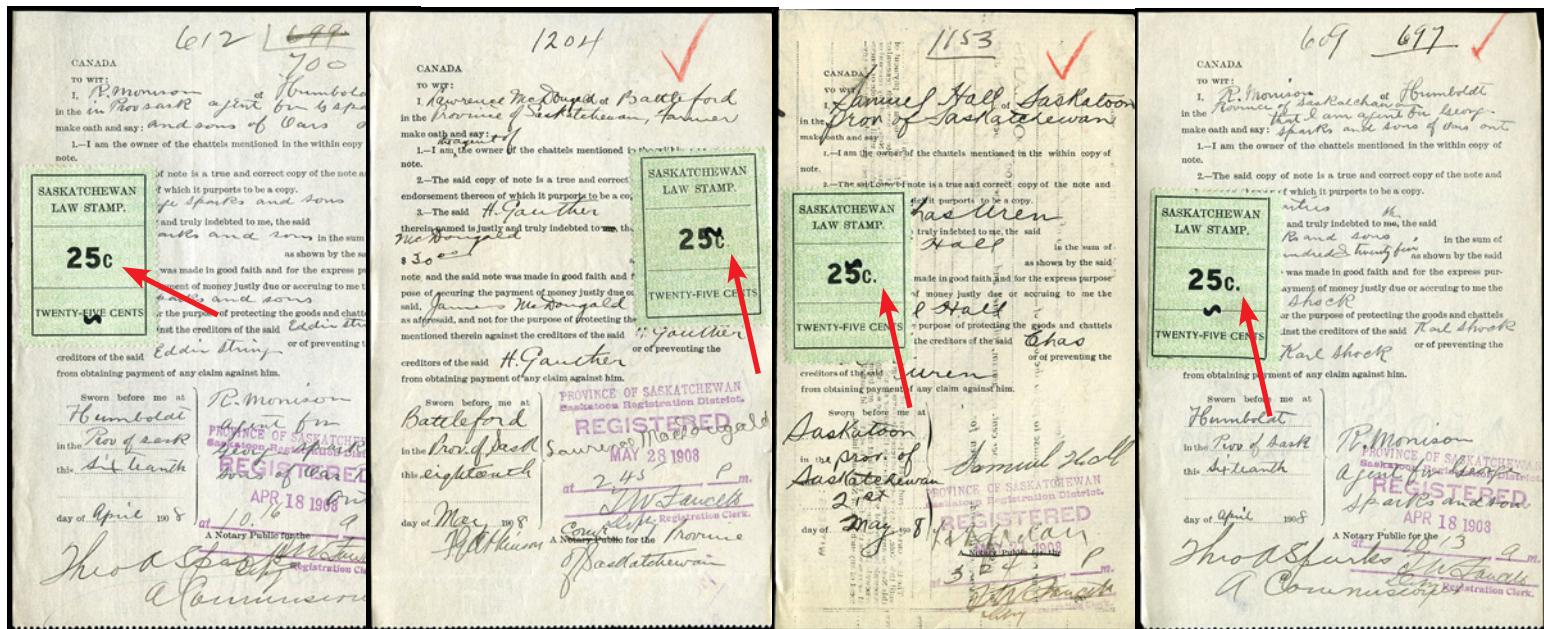 612 699
700
CANADA
TO WIT:
I, R. Monison of Humboldt
in the in Prov sask agent for G spa
make oath and say: and sons of Oars
1.—I am the owner of the chattels mentioned in the within copy
note.
of note is a true and correct copy of the note a
f which it purports to be a copy.
ge Sparks and sons
and truly indebted to me, the said
arks and sons in the sum
as shown by the sa
was made in good faith and for the express p
ment of money justly due or accruing to me t
parks and sons
r the purpose of protecting the goods and chatt
nst the creditors of the said Eddin Stri
creditors of the said Eddin String or of preventing the
from obtaining payment of any claim against him.
SASKATCHEWAN
LAW STAMP.
25c
TWENTY-FIVE CENTS
Sworn before me at
Humboldt
in the Prov of sask
this Sixteanth
day of April 1908
R. Monison
Agent for
Geor Sparks
Sons of Oars
Ont
PROVINCE OF SASKATCHEW
Saskatoon Registration Dis
REGISTERED
APR 18 1908
at 9
A Notary Public for the
Registration Cl
Theo A Sparks
A Commission
1204
CANADA
TO WIT:
I, Lawrence McDougald of Battleford
in the Province of Saskatchewan, Farmer
make oath and say:
the agent of
1.—I am the owner of the chattels mentioned in
note.
2.—The said copy of note is a true and correct
endorsement thereof of which it purports to be a co
3.—The said H. Gauther
therein named is justly and truly indebted to me, th
McDougald
$30.00
note and the said note was made in good faith and f
pose of securing the payment of money justly due o
said, James McDougald
as aforesaid, and not for the purpose of protecting t
mentioned therein against the creditors of the said H. Gauther
or of preventing the
creditors of the said H. Gauther
from obtaining payment of any claim against him.
SASKATCHEWAN
LAW STAMP.
25c.
TWENTY-FIVE CENTS
Sworn before me at
Battleford
in the Prov. of Sask
this eighteenth
day of May 1908
PROVINCE OF SASKATCHEWAN
Saskatoon Registration District.
REGISTERED
Lawrence MacDougald
MAY 28 1908
at 2 45 P m.
Registration Clerk.
A Notary Public for the Province
of Saskatchewan
1153
CANADA
TO WIT:
I, Samuel Hall of Saskatoon
in the prov of Saskatchewan
make oath and say:
1.—I am the owner of the chattels mentioned in the within copy of
note.
2.—The said copy of note is a true and correct copy of the note and
which it purports to be a copy.
Chas Uren
truly indebted to me, the said
Hall in the sum of
as shown by the said
made in good faith and for the express purpose
of money justly due or accruing to me the
l Hall
purpose of protecting the goods and chattels
the creditors of the said Chas
or of preventing the
creditors of the said Uren
from obtaining payment of any claim against him.
SASKATCHEWAN
LAW STAMP.
25c.
TWENTY-FIVE CENTS
Sworn before me at
Saskatoon
in the prov of
Saskatchewan
21st
day of May 1908
Samuel Hall
PROVINCE OF SASKATCHEWAN
Saskatoon Registration District.
REGISTERED
1908
A Notary Public for the
3 24 P m.
Registration Clerk.
609 697
CANADA
TO WIT:
I, R. Monison of Humboldt
in the Province of Saskatchewan
that I am agent for Georg
make oath and say: Sparks and sons of Oars ont
1.—I am the owner of the chattels mentioned in the within copy of
note.
of note is a true and correct copy of the note and
f which it purports to be a copy.
and truly indebted to me, the said
ks and sons in the sum of
undred & twenty five as shown by the said
was made in good faith and for the express pur-
ayment of money justly due or accruing to me the
Shock
r the purpose of protecting the goods and chattels
inst the creditors of the said Karl Shock
Karl Shock or of preventing the
from obtaining payment of any claim against him.
SASKATCHEWAN
LAW STAMP.
25c.
TWENTY-FIVE CENTS
Sworn before me at
Humboldt
in the Prov of Sask
this Sixteanth
day of April 1908
R. Monison
Agent for George
Sparks and son
PROVINCE OF SASKATCHEWAN
Saskatoon Registration District.
REGISTERED
APR 18 1908
A Notary Public for the
at 10 13 a m.
Registration Clerk.
Theo A Sparks
A Commission